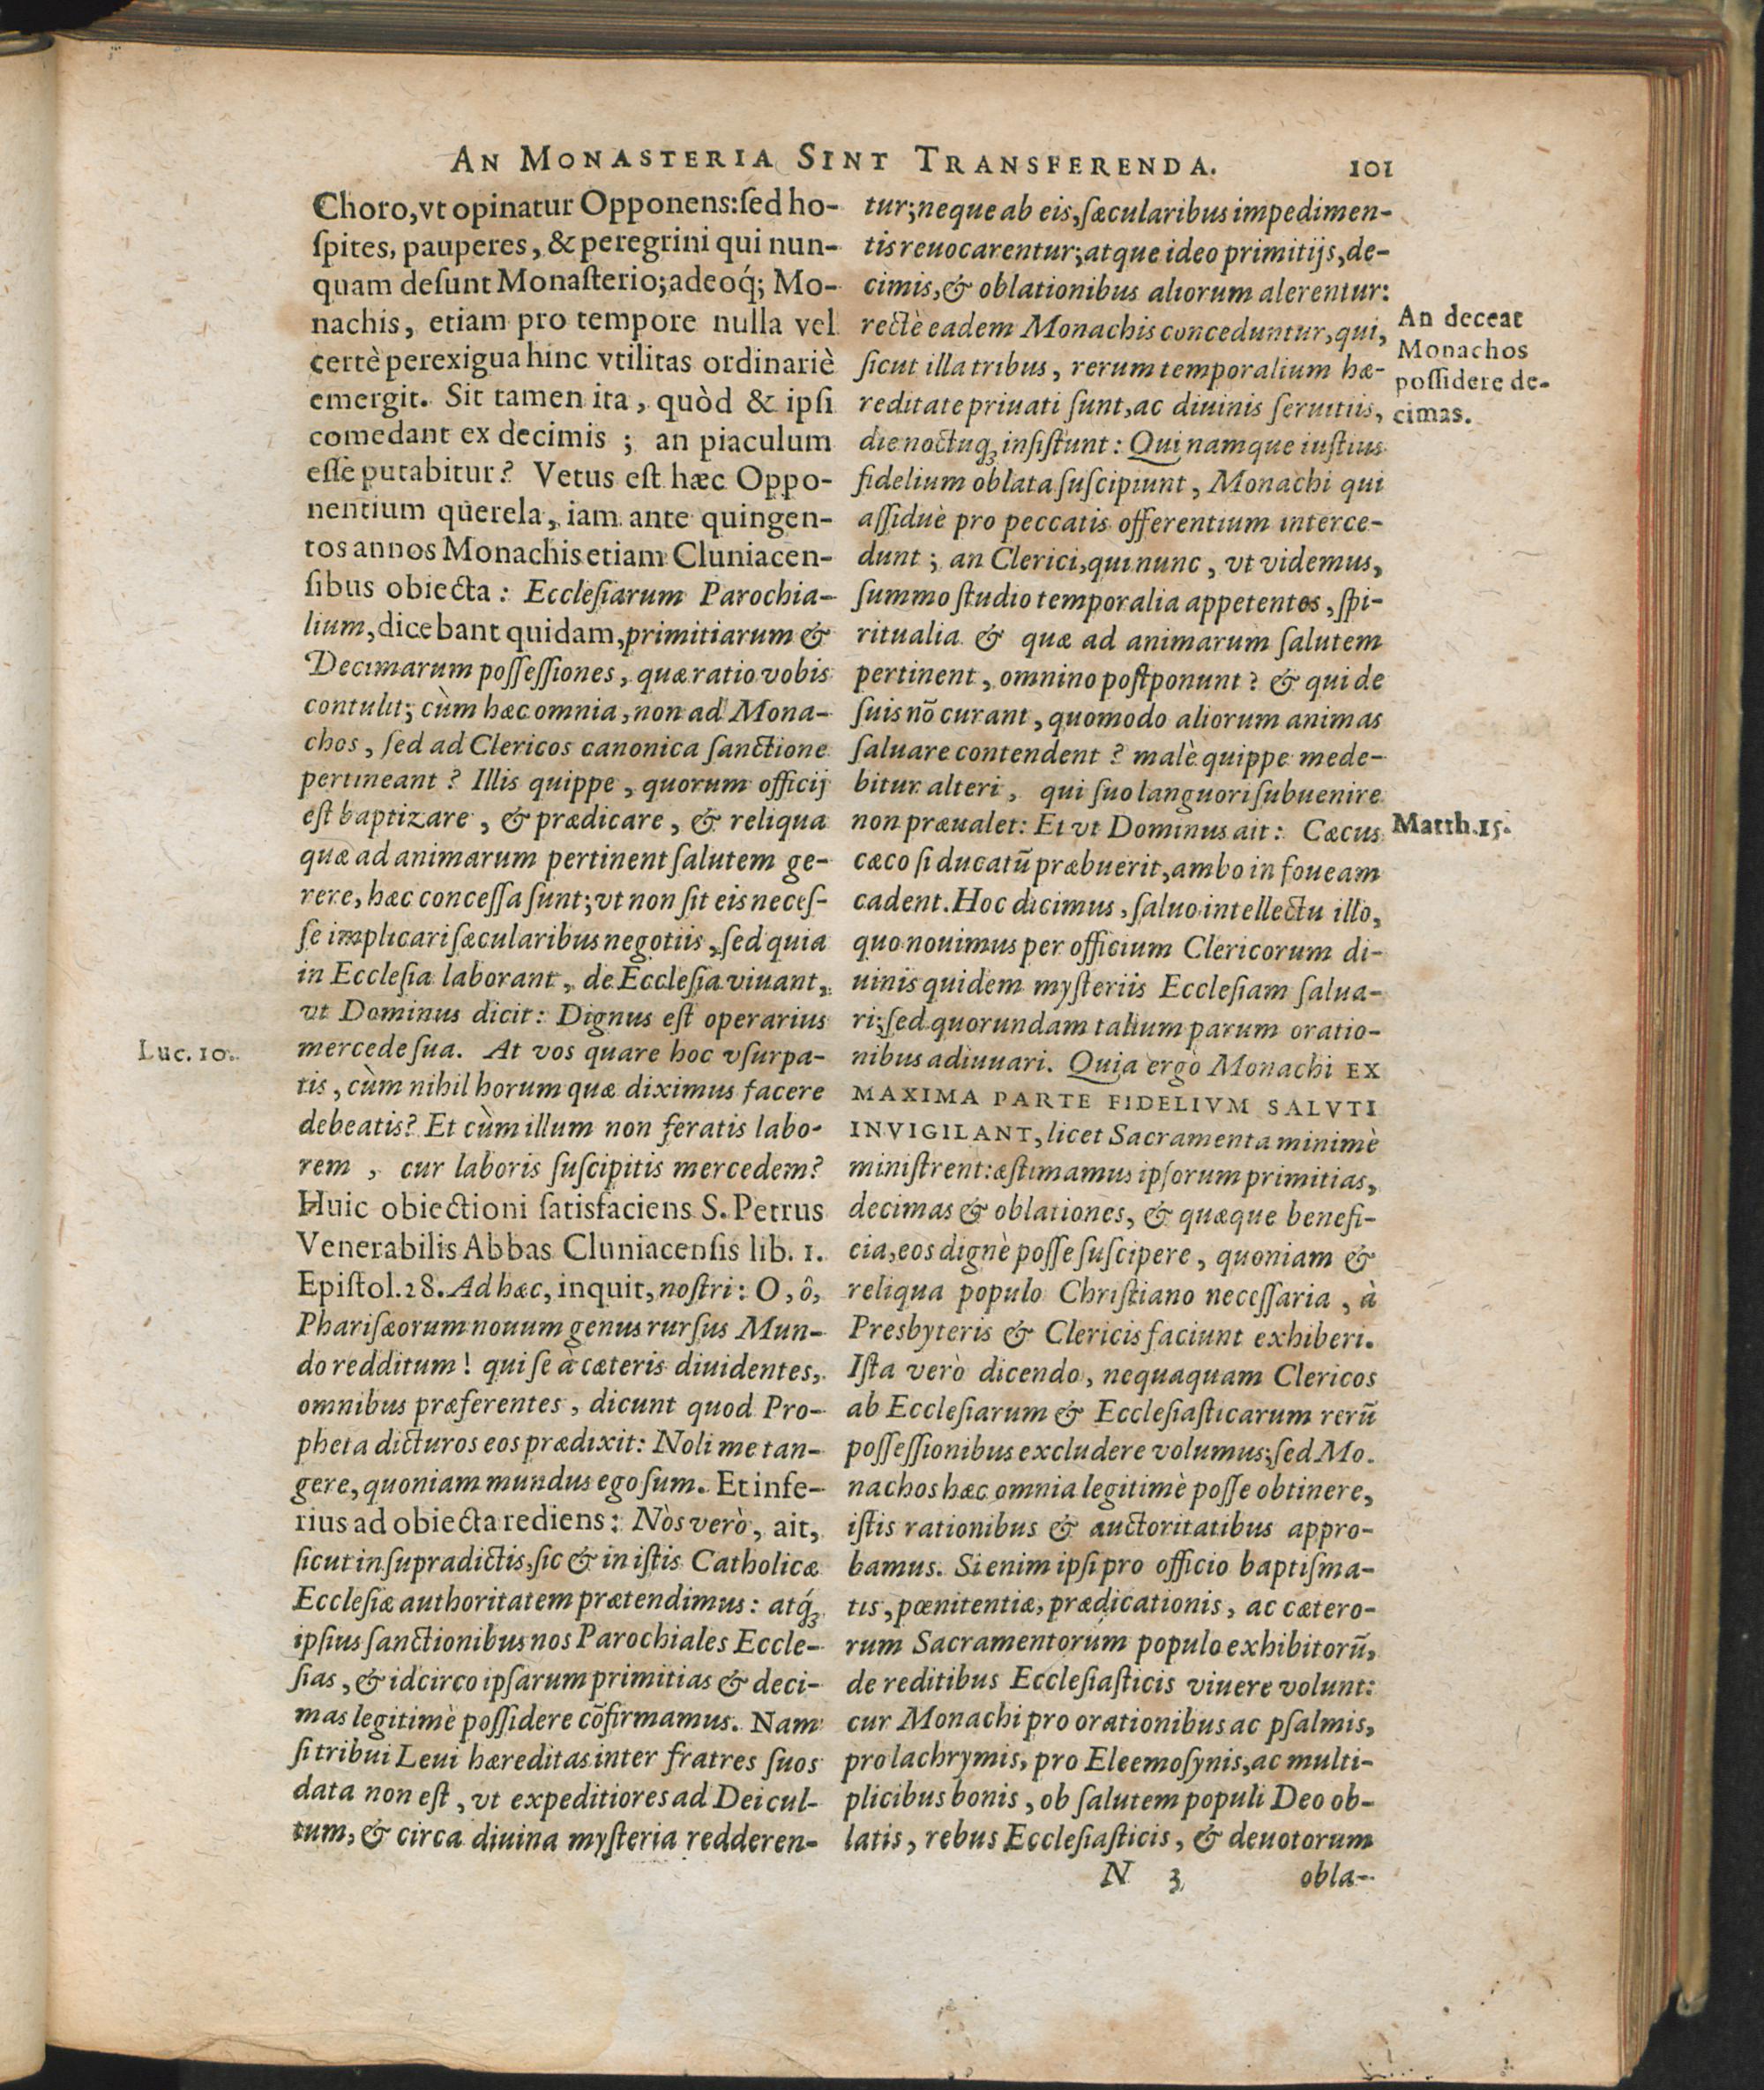 AN MONASTERIA SINT TRANSFERENDA. 101
Choro,vt opinatur Opponens:ſed ho-
ſpites, pauperes, & peregrini qui nun-
quam deſunt Monaſterio;adeoq́; Mo-
nachis, etiam pro tempore nulla vel
certè perexigua hinc vtilitas ordinariè
emergit. Sit tamen ita, quòd & ipſi
comedant ex decimis ; an piaculum
eſſe putabitur? Vetus eſt hæc Oppo-
nentium querela, iam ante quingen-
tos annos Monachis etiam Cluniacen-
ſibus obiecta: Eccleſiarum Parochia-
lium, dicebant quidam, primitiarum &
Decimarum poſſeſſiones, quæ ratio vobis
contulit; cùm hæc omnia, non ad Mona-
chos, ſed ad Clericos canonica ſanctione
pertineant? Illis quippe, quorum officij
eſt baptizare, & prædicare, & reliqua
quæ ad animarum pertinent ſalutem ge-
rere, hæc conceſſa ſunt; vt non ſit eis neceſ-
ſe implicari ſæcularibus negotiis, ſed quia
in Eccleſia laborant, de Eccleſia viuant,
vt Dominus dicit: Dignus eſt operarius
Luc. 10.
mercede ſua. At vos quare hoc vſurpa-
tis, cùm nihil horum quæ diximus facere
debeatis? Et cùm illum non feratis labo-
rem, cur laboris ſuſcipitis mercedem?
Huic obiectioni ſatisfaciens S. Petrus
Venerabilis Abbas Cluniacenſis lib. 1.
Epiſtol.28. Ad hæc, inquit, noſtri: O, ô,
Phariſæorum nouum genus rurſus Mun-
do redditum! qui ſe à cæteris diuidentes,
omnibus præferentes, dicunt quod Pro-
pheta dicturos eos prædixit: Noli me tan-
gere, quoniam mundus ego ſum. Et infe-
rius ad obiecta rediens: Nòs verò, ait,
ſicut in ſupradictis, ſic & in iſtis Catholicæ
Eccleſiæ authoritatem prætendimus: atq́ꝫ
ipſius ſanctionibus nos Parochiales Eccle-
ſias, & idcirco ipſarum primitias & deci-
mas legitimè poſſidere cōfirmamus. Nam
ſi tribui Leui hæreditas inter fratres ſuos
data non eſt, vt expeditiores ad Dei cul-
tum, & circa diuina myſteria redderen-
tur; neque ab eis, ſæcularibus impedimen-
tis reuocarentur; atque ideo primitijs, de-
cimis, & oblationibus aliorum alerentur:
rectè eadem Monachis conceduntur, qui,
ſicut illa tribus, rerum temporalium hæ-
reditate priuati ſunt, ac diuinis ſeruitiis,
An deceat
Monachos
poſſidere de-
cimas.
die noctuqꝫ inſiſtunt: Qui namque iuſtius
fidelium oblata ſuſcipiunt, Monachi qui
aſſiduè pro peccatis offerentium interce-
dunt; an Clerici, qui nunc, vt videmus,
ſummo ſtudio temporalia appetentes, ſpi-
ritualia & quæ ad animarum ſalutem
pertinent, omnino poſtponunt? & qui de
ſuis nō curant, quomodo aliorum animas
ſaluare contendent? malè quippe mede-
bitur alteri, qui ſuo languori ſubuenire
non præualet: Et vt Dominus ait: Cæcus
Matth.15.
cæco ſi ducatū præbuerit, ambo in foueam
cadent. Hoc dicimus, ſaluo intellectu illo,
quo nouimus per officium Clericorum di-
uinis quidem myſteriis Eccleſiam ſalua-
ri; ſed quorundam talium parum oratio-
nibus adiuuari. Quia ergò Monachi EX
MAXIMA PARTE FIDELIVM SALVTI
INVIGILANT, licet Sacramenta minimè
miniſtrent: æſtimamus ipſorum primitias,
decimas & oblationes, & quæque benefi-
cia, eos dignè poſſe ſuſcipere, quoniam &
reliqua populo Chriſtiano neceſſaria, à
Presbyteris & Clericis faciunt exhiberi.
Iſta verò dicendo, nequaquam Clericos
ab Eccleſiarum & Eccleſiaſticarum rerū
poſſeſſionibus excludere volumus; ſed Mo.
nachos hæc omnia legitimè poſſe obtinere,
iſtis rationibus & auctoritatibus appro-
bamus. Si enim ipſi pro officio baptiſma-
tis, pœnitentiæ, prædicationis, ac cætero-
rum Sacramentorum populo exhibitorū,
de reditibus Eccleſiaſticis viuere volunt:
cur Monachi pro orationibus ac pſalmis,
pro lachrymis, pro Eleemoſynis, ac multi-
plicibus bonis, ob ſalutem populi Deo ob-
latis, rebus Eccleſiaſticis, & deuotorum
N 3 obla-